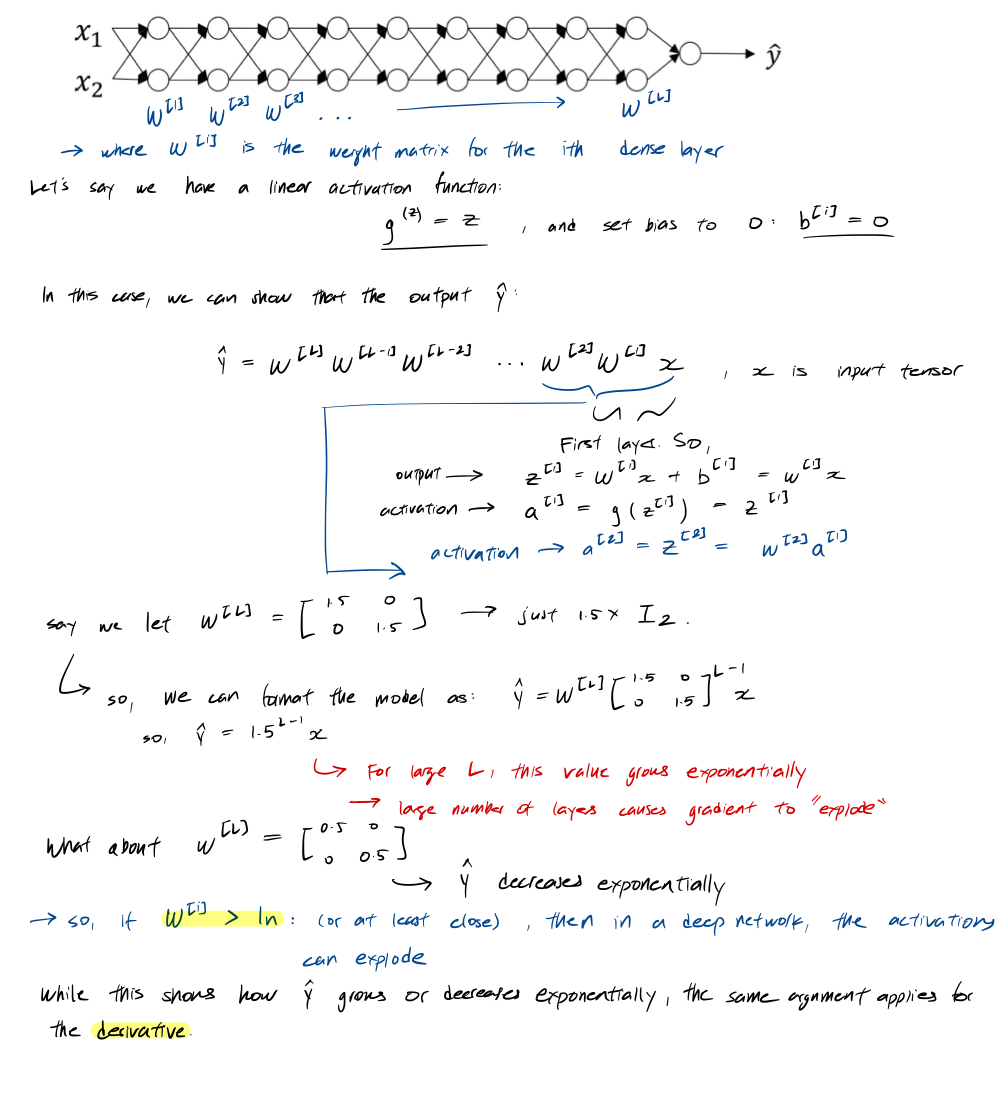 x₁
x₂
ŷ
W^[1] W^[2] W^[3] ... → W^[L]
→ where W^[i] is the weight matrix for the ith dense layer
Let's say we have a linear activation function:
g^(z) = z , and set bias to 0: b^[i] = 0
In this case, we can show that the output ŷ:
ŷ = W^[L] W^[L-1] W^[L-2] ... W^[2] W^[1] x , x is input tensor
First layer. So,
output → z^[1] = W^[1] x + b^[1] = W^[1] x
activation → a^[1] = g(z^[1]) = z^[1]
activation → a^[2] = z^[2] = W^[2] a^[1]
say we let W^[L] = [1.5 0 0 1.5] → just 1.5 × I₂.
so, we can format the model as: ŷ = W^[L] [1.5 0 0 1.5]^L-1 x
so, ŷ = 1.5^L-1 x
↳ For large L, this value grows exponentially
→ large number of layers causes gradient to "explode"
What about W^[L] = [0.5 0 0 0.5]
↳ ŷ decreases exponentially
→ so, if W^[i] > In : (or at least close) , then in a deep network, the activations
can explode
While this shows how ŷ grows or decreases exponentially, the same argument applies for
the derivative.